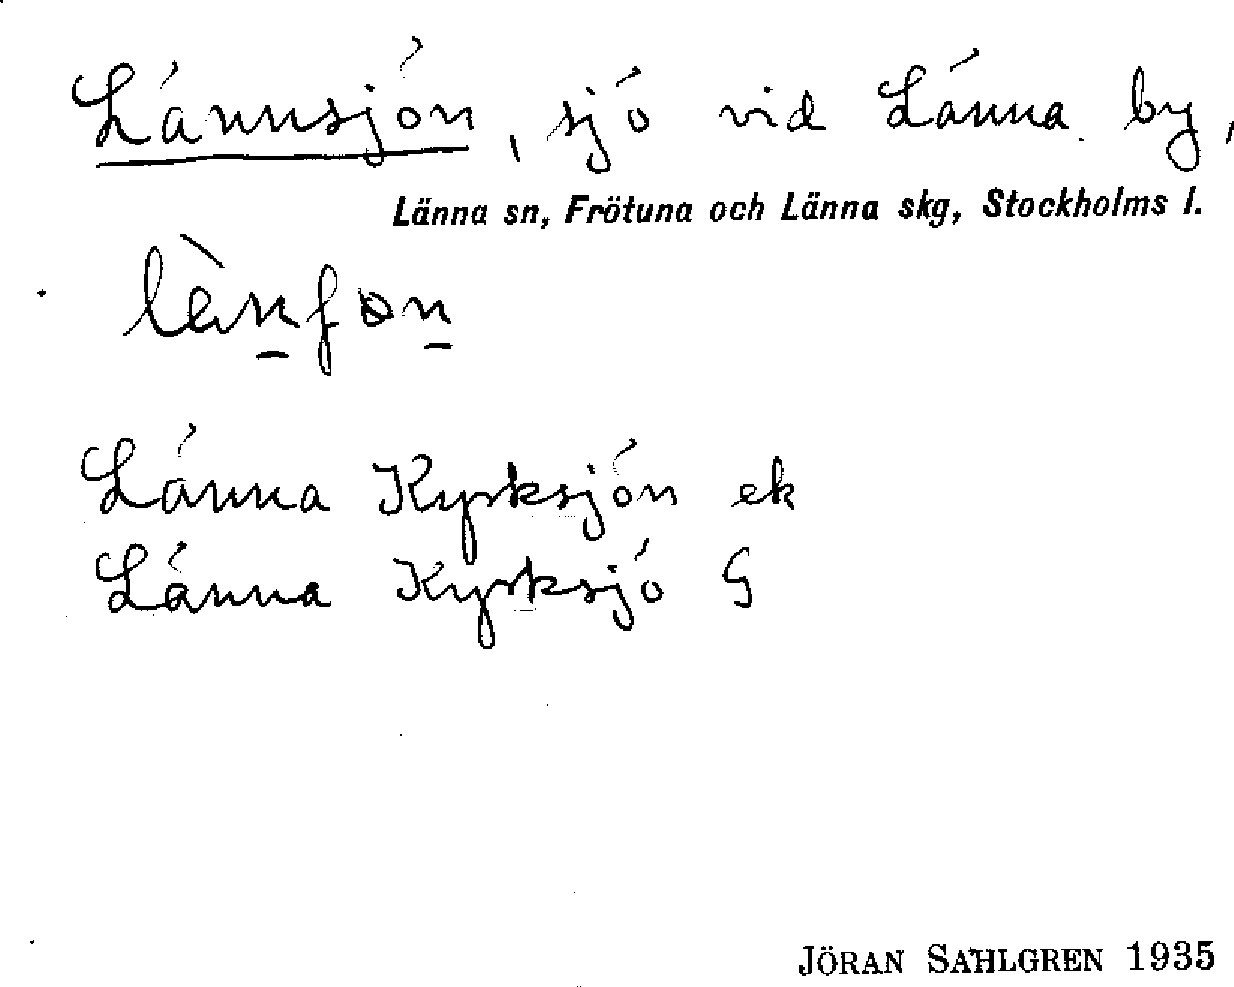 Lännsjön, sjö vid Länna by,
Länna sn, Frötuna och Länna skg, Stockholms l.
Länna Kyrksjön ek
Länna Kyrksjö G
JÖRAN SAHLGREN 1935